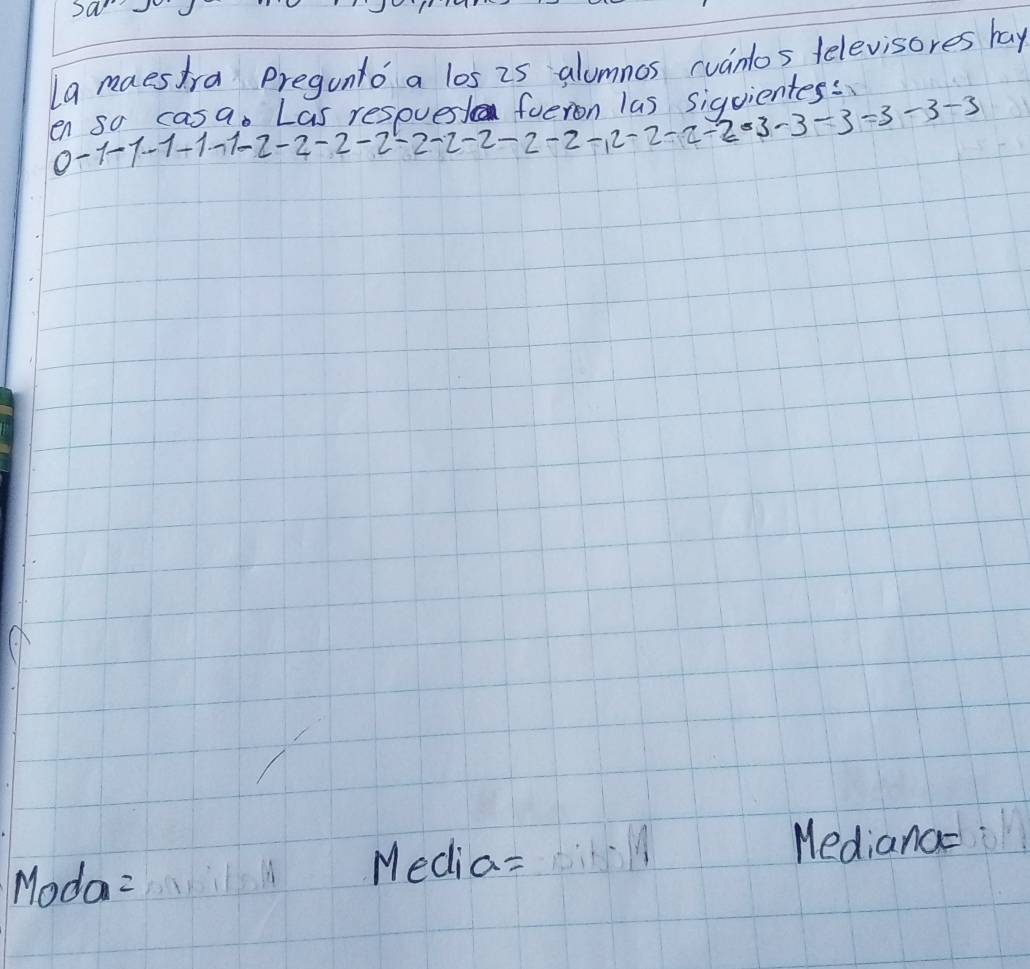 La maestra Preguntó a los 25 alumnos cuántos televisores hay
en su casa. Las respuesta fueron las siguientes:
0-1-1-1-1-1-2-2-2-2-2-2-2-2-2-2-2-2-2-3-3-3-3-3-3
Moda= Media= Mediana=